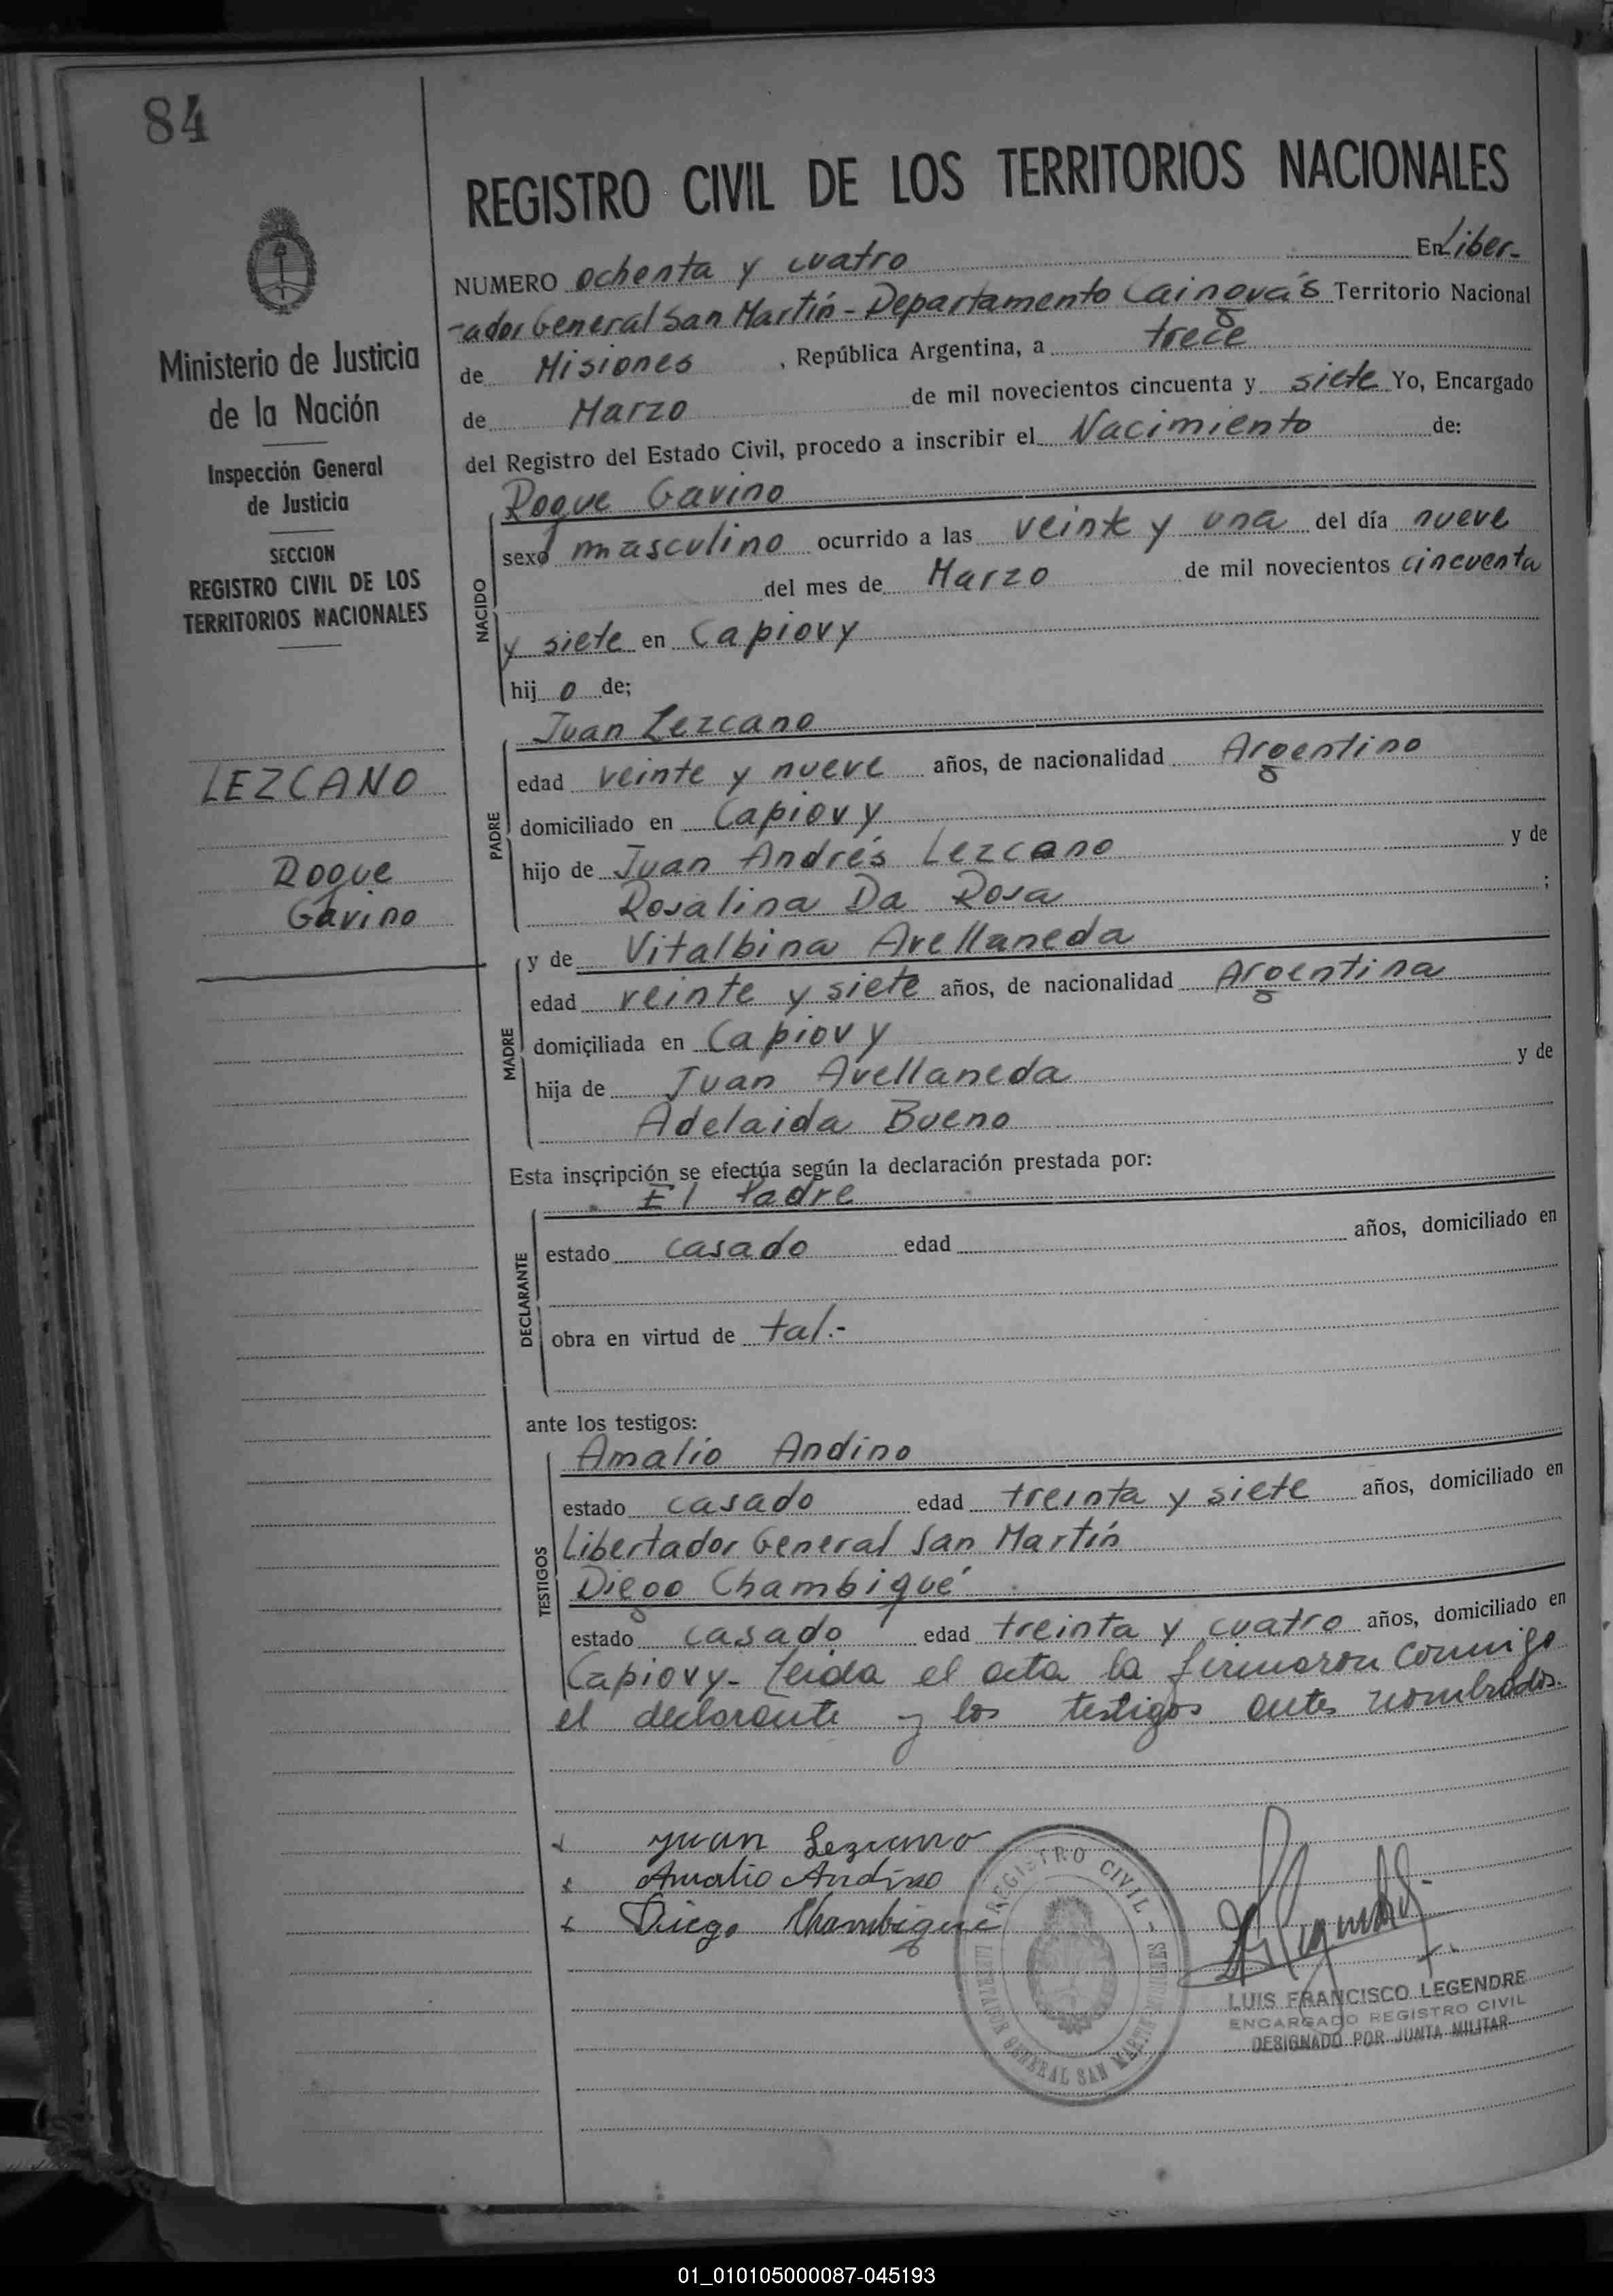 84
REGISTRO CIVIL DE LOS TERRITORIOS NACIONALES
Ministerio de Justicia
de la Nación
Inspección General
de Justicia
SECCION
REGISTRO CIVIL DE LOS
TERRITORIOS NACIONALES
NUMERO ochenta y cuatro En Liber-
-ador General San Martín - Departamento Cainguás Territorio Nacional
de Misiones , República Argentina, a trece
de Marzo de mil novecientos cincuenta y siete Yo, Encargado
del Registro del Estado Civil, procedo a inscribir el Nacimiento de:
NACIDO
Roque Gavino
sexo masculino ocurrido a las veinte y una del día nueve
del mes de Marzo de mil novecientos cincuenta
y siete en Capiovy
hij o de;
LEZCANO
Roque
Gavino
PADRE
Juan Lezcano
edad veinte y nueve años, de nacionalidad Argentino
domiciliado en Capiovy
hijo de Juan Andrés Lezcano y de
Rosalina Da Rosa ;
MADRE
y de Vitalbina Avellaneda
edad veinte y siete años, de nacionalidad Argentina
domiciliada en Capiovy
hija de Juan Avellaneda y de
Adelaida Bueno
Esta inscripción se efectúa según la declaración prestada por:
DECLARANTE
El Padre
estado casado edad años, domiciliado en
obra en virtud de tal.-
ante los testigos:
TESTIGOS
Amalio Andino
estado casado edad treinta y siete años, domiciliado en
Libertador General San Martín
Diego Chambiqué
estado casado edad treinta y cuatro años, domiciliado en
Capiovy- Leida el acta la firmaron conmigo
el declarante y los testigos antes nombrados.
Juan Lezcano
Amalio Andino
Diego Chambique
REGISTRO CIVIL - MISIONES
LIBERTADOR GENERAL SAN MARTIN
LUIS FRANCISCO LEGENDRE
ENCARGADO REGISTRO CIVIL
DESIGNADO POR JUNTA MILITAR
01_010105000087-045193